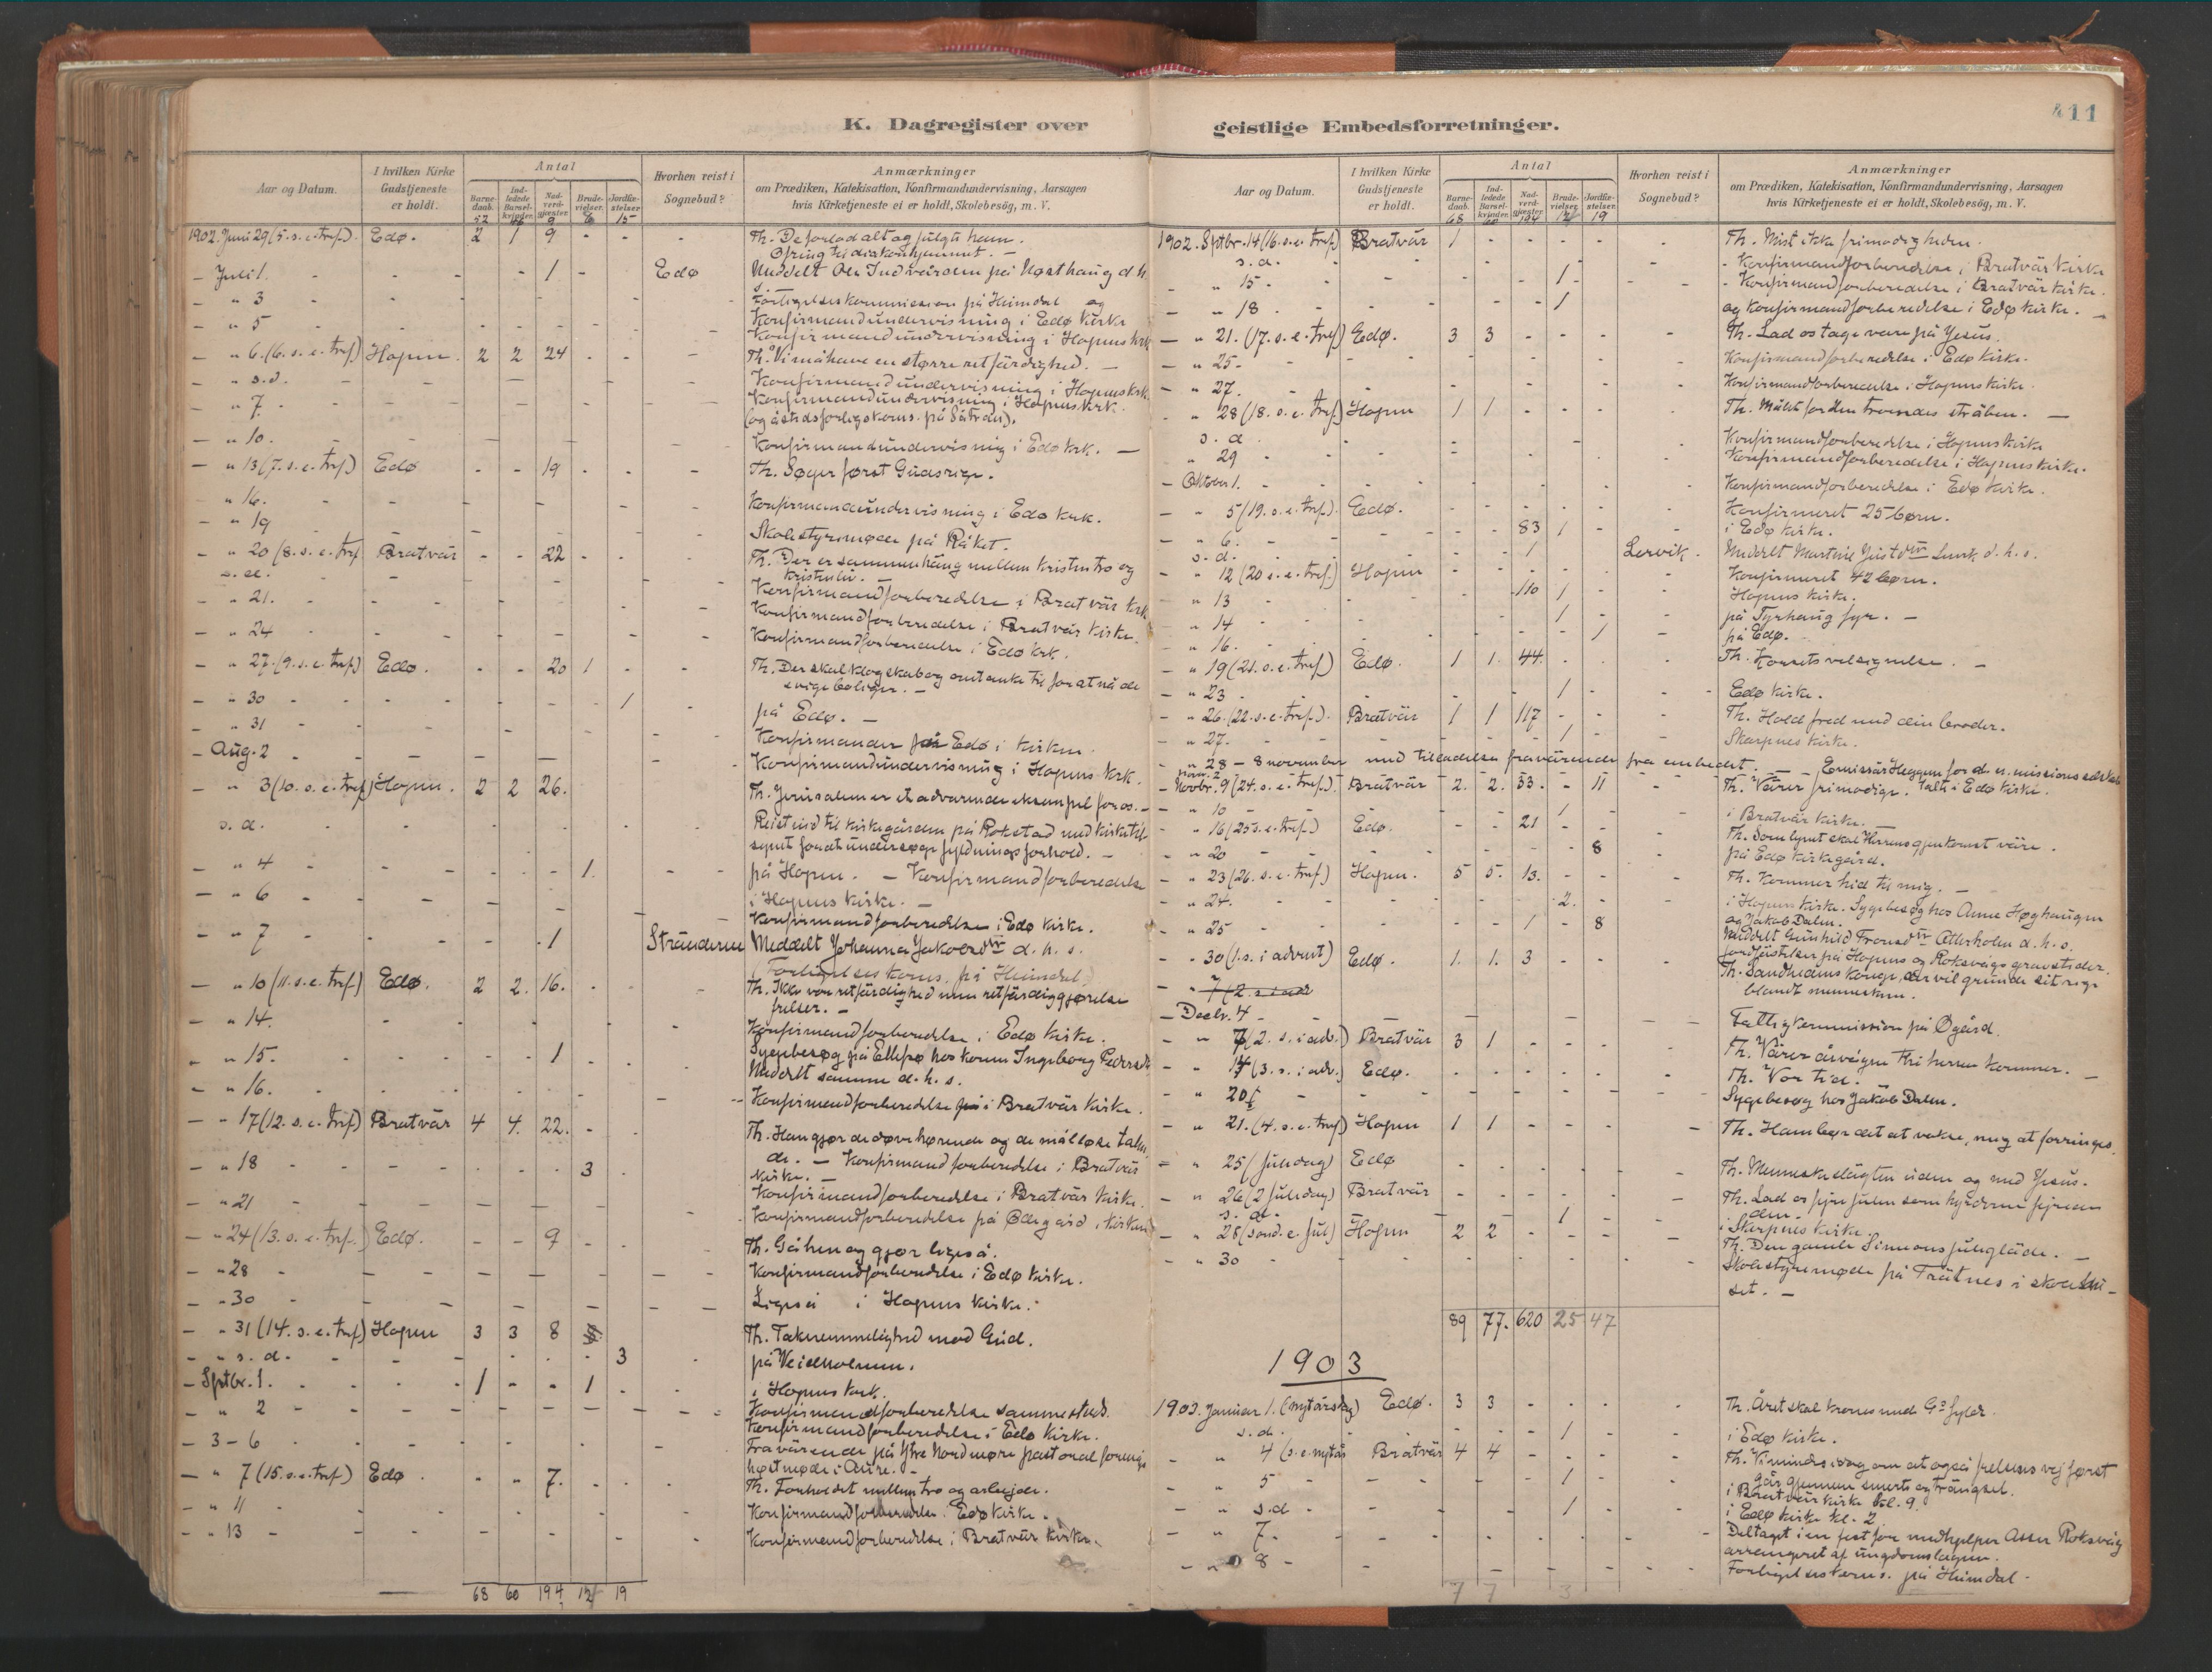 411
K. Dagregister over geistlige Embedsforretninger.
Aar og Datum.
I hvilken Kirke Gudstjeneste er holdt.
Antal
Barnedaab.
Indledede Barselkvinder.
Nadverdgjæster.
Brudevielser.
Jordfæstelser.
Hvorhen reist i Sognebud?
Anmærkninger
om Prædiken, Katekisation, Konfirmandundervisning, Aarsagen
hvis Kirketjeneste ei er holdt, Skolebesög, m. V.
52 9 15
1902. Juni 29 (5. s. e. tref.) Edø. 2 1 9 - - - Th. De forlod alt og fulgte ham.
- Juli 1. - - 1 - Edø Meddelt Ole på Nøsthaug d. h.
s.
- " 3 - Forligelseskommission på Heimdal og
Konfirmandundervisning i Edø kirke
- " 5 - Konfirmandundervisning i Hopens krk
- " 6. (6. s. e. tref) Hopen. 2 2 24 - - - Th. Vi må have en større retfærdighed. -
- " s. d. - Konfirmandundervisning i Hopens krk.
- " 7 - Konfirmandundervisning i Hopens krk.
- " 10. - Konfirmandundervisning i Edø krk. -
- " 13 (7. s. e. tref) Edø - - 19 - - - Th. Søger først Guds rige.
- " 16. - Konfirmandundervisning i Edø krk.
- " 19 - Skolestyrsmøde på Råket.
- " 20 (8. s. e. tref Bratvær - - 22 - - - Th. Der er sammenhæng mellem kristentro og
kristenliv. -
s. d. - Konfirmandforberedelse i Bratvær krk
- " 21. - Konfirmandforberedelse i Bratvær kirke.
- " 24 - Konfirmandforberedelse i Edø krk.
- " 27. (9. s. e. tref) Edø. - - 20 1 - - Th. Der skal klogskab og omtanke til for at nå de
evige boliger. -
- " 30 - 1 - på Edø. -
- " 31 - Konfirmander Edø i kirken.
- Aug. 2 - Konfirmandundervisning i Hopens krk.
- " 3 (10. s. e. tref) Hopen. 2 2 26. Th. Jerusalem er et advarende eksempel for os. -
s. d. - Reist ind til kirkegården på Rokstad med kirketil-
synet for at undersøge fyldningsforhold. -
- " 4 - 1. - på Hopen. - Konfirmandforberedelse
i Hopens kirke. -
- " 6 - Konfirmandforberedelse i Edø kirke.
- " 7 - 1 Stranderne Meddelt Johanna Jakobsdtr d. h. s.
(Forligelseskoms. på Heimdal)
- " 10 (11. s. e. tref) Edø. 2 2. 16. - - - Th. Ikke vor retfærdighed men retfærdiggjørelse
frelser. -
- " 14. - Konfirmandforberedelse i Edø kirke.
- " 15. - 1 - Sygebesøg på Ellefsø hos konen Ingeborg Pedersdtr
Meddelt samme d. h. s.
- " 16. - Konfirmandforberedelse i Bratvær kirke.
- " 17 (12. s. e. tref) Bratvær 4 4. 22. - - Th. Han gjør de døve hørende og de målløse talen-
de. - Konfirmandforberedelse i Bratvær
kirke. -
- " 18 - 3
- " 21 - Konfirmandforberedelse i Bratvær kirke.
Konfirmandforberedelse på Ødegård i kirken
- " 24 (13. s. e. tref.) Edø. - - 9 - - Th. Gå hen og gjør ligeså.
- " 28 - Konfirmandforberedelse i Edø kirke.
- " 30 - Ligeså i Hopens kirke. -
- " 31 (14. s. e. tref) Hopen 3 3 8 Th. Taknemmelighed mod Gud.
- " s. d. - 3 på Veidholmen.
- Sptbr. 1. 1 - - 1 - i Hopens kirk.
- " 2 - Konfirmandforberedelse sammesteds.
Konfirmandforberedelse i Edø kirke.
- 3 - 6 - Fraværende på Ytre Nordmøre pastoralforenings
høstmøde i Aure. -
- " 7 (15. s. e. tref) Edø. - - 7. - - Th. Forholdet mellem tro og arbejde.
- " 11 - Konfirmandforberedelse. Edø kirke.
- " 13 - Konfirmandforberedelse i Bratvær kirke.
68 60 194 12 19
Aar og Datum.
I hvilken Kirke Gudstjeneste er holdt.
Antal
Barnedaab.
Indledede Barselkvinder.
Nadverdgjæster.
Brudevielser.
Jordfæstelser.
Hvorhen reist i Sognebud?
Anmærkninger
om Prædiken, Katekisation, Konfirmandundervisning, Aarsagen
hvis Kirketjeneste ei er holdt, Skolebesög, m. V.
68 60 194 12 19
1902. Sptbr. 14 (16. s. e. tref) Bratvær 1 - - - - - Th. Mist ikke frimodigheden.
s. d. - Konfirmandforberedelse i Bratvær kirke
" 15 - 1 - Konfirmandforberedelse i Bratvær kirke.
- " 18 - 1 og konfirmandforberedelse i Edø kirke. -
- " 21. (17. s. e. tref) Edø. 3 3 - - - - Th. Lad os tage vare på Jesus.
- " 25 - Konfirmandforberedelse i Edø kirke.
- " 27. - Konfirmandforberedelse i Hopens kirke.
- " 28 (18. s. e. tref.) Hopen 1 1 - - - - Th. Målet for den troendes stræben. -
s. d. - Konfirmandforberedelse i Hopens kirke
" 29 - Konfirmandforberedelse i Hopens kirke.
- Oktober 1. - Konfirmandforberedelse i Edø kirke.
- " 5 (19. s. e. tref.) Edø. - Konfirmeret 25 børn.
- " 6. - 83 1 - i Edø kirke.
s. d. - 1 Lervik. Meddelt d. h. s.
- " 12 (20 s. e. tref.) Hopen - Konfirmeret 42 børn.
- " 13 - 110 1 - Hopens kirke.
- " 14 - 1 - på Tyrhaug fyr. -
- " 16. - 1 - på Edø.
- " 19 (21. s. e. tref) Edø. 1 1. 44. - - - Th. Korsets velsignelse. -
- " 23 - 1 - Edø kirke.
- " 26. (22. s. e. tref.). Bratvær 1 1 117 - - - Th. Hold fred med din broder.
- " 27. - 1 - Skarpnes kirke.
- " 28 - 8 november med tilladelse fraværende fra embedet. - - Emissær Heggem for d. n. missionsselskab
nov. 2 talte i Edø kirke.
- Novbr. 9 (24. s. e. tref.). Bratvær 2. 2. 33. - 11 - Th. Værer frimodige.
- " 10 - 1 - i Bratvær kirke.
- " 16 (25 s. e. tref.) Edø. - - 21 - - Th. Som lynet skal Herrens gjenkomst være.
- " 20 - 8 - på Edø kirkegård.
- " 23 (26. s. e. tref) Hopen. 5 5. 13. - - - Th. Kommer hid til mig. -
- " 24. - 2. - i Hopens kirke. Sygebesøg hos Anne Høghaugen
og Jakob Dalen.
- " 25 - 1 - 8 Meddelt Gunhild dtr Atterholm d. h. s.
Jordfæstelser på Hopens og Roksvågs gravsteder.
- " 30 (1. s. i advent) Edø. 1. 1. 3 - - - Th. Sandhedens konge, der vil grunde sit rige
blandt menneskene.
- " 7 (2. s. i adv
- Decbr. 4 - Fattigkommission på Øgård.
- " 7 (2. s. i adv.) Bratvær 3 1 - - - Th. Værer årvågne thi herren kommer. -
- " 14 (3. s. i adv.) Edø. - Th. Vor tid.
- " 20 - Sygebesøg hos Jakob Dalen.
- " 21. (4. s. e. tref) Hopen 1 1 - - - Th. Ham bør det at vokse, mig at forringes.
- " 25 (juledag) Edø - Th. Menneskeslægten uden og med Jesus.
- " 26 (2 juledag) Bratvær - Th. Lad os fejre julen som hyrderne fejrede
den.
s. d. - 1 - i Skarpnes kirke.
- " 28 (sønd. e. jul) Hopen 2 2 - - - - Th. Den gamle Simeons juleglæde. -
- " 30 - Skolestyremøde på Trætnes i skolehu-
set. -
89 77. 620 25 47
1903
1903. Januar 1. (nytårsdag) Edø. 3 3 - - - - Th. Året skal krones med Gs fylde.
s. d. - 1 - i Edø kirke.
" 4 (s. e. nytår Bratvær 4 4 - - - Th. Vi mindes idag om at også frelsens vej først
går gjennem smerte og trængsel.
- " 5 - 1 - i Bratvær kirke kl. 9.
- " s. d - 1 - i Edø kirke kl. 2
- " 7. - Deltaget i en fest for medhjelper Asser Roksvåg
arrangeret af ungdomslagene.
- " 8 - Forligelseskoms. på Heimdal.
7 7 3